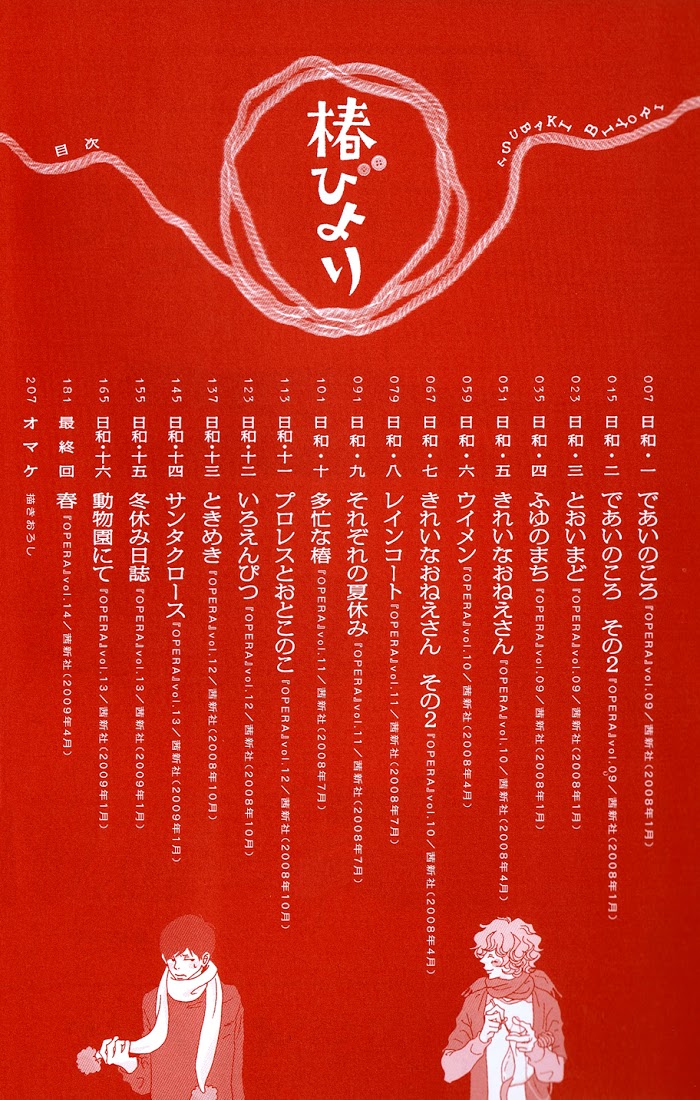 椿びより
TSUBAKI BIYORI
目次
007 日和・一 であいのころ 『OPERA』vol.09／茜新社（2008年1月）
015 日和・二 であいのころ その2 『OPERA』vol.09／茜新社（2008年1月）
023 日和・三 とおいまど 『OPERA』vol.09／茜新社（2008年1月）
035 日和・四 ふゆのまち 『OPERA』vol.09／茜新社（2008年1月）
051 日和・五 きれいなおねえさん 『OPERA』vol.10／茜新社（2008年4月）
059 日和・六 ウイメン 『OPERA』vol.10／茜新社（2008年4月）
067 日和・七 きれいなおねえさん その2 『OPERA』vol.10／茜新社（2008年4月）
079 日和・八 レインコート 『OPERA』vol.11／茜新社（2008年7月）
091 日和・九 それぞれの夏休み 『OPERA』vol.11／茜新社（2008年7月）
101 日和・十 多忙な椿 『OPERA』vol.11／茜新社（2008年7月）
113 日和・十一 プロレスとおとこのこ 『OPERA』vol.12／茜新社（2008年10月）
123 日和・十二 いろえんぴつ 『OPERA』vol.12／茜新社（2008年10月）
137 日和・十三 ときめき 『OPERA』vol.12／茜新社（2008年10月）
145 日和・十四 サンタクロース 『OPERA』vol.13／茜新社（2009年1月）
155 日和・十五 冬休み日誌 『OPERA』vol.13／茜新社（2009年1月）
165 日和・十六 動物園にて 『OPERA』vol.13／茜新社（2009年1月）
181 最終回 春 『OPERA』vol.14／茜新社（2009年4月）
207 オマケ 描きおろし